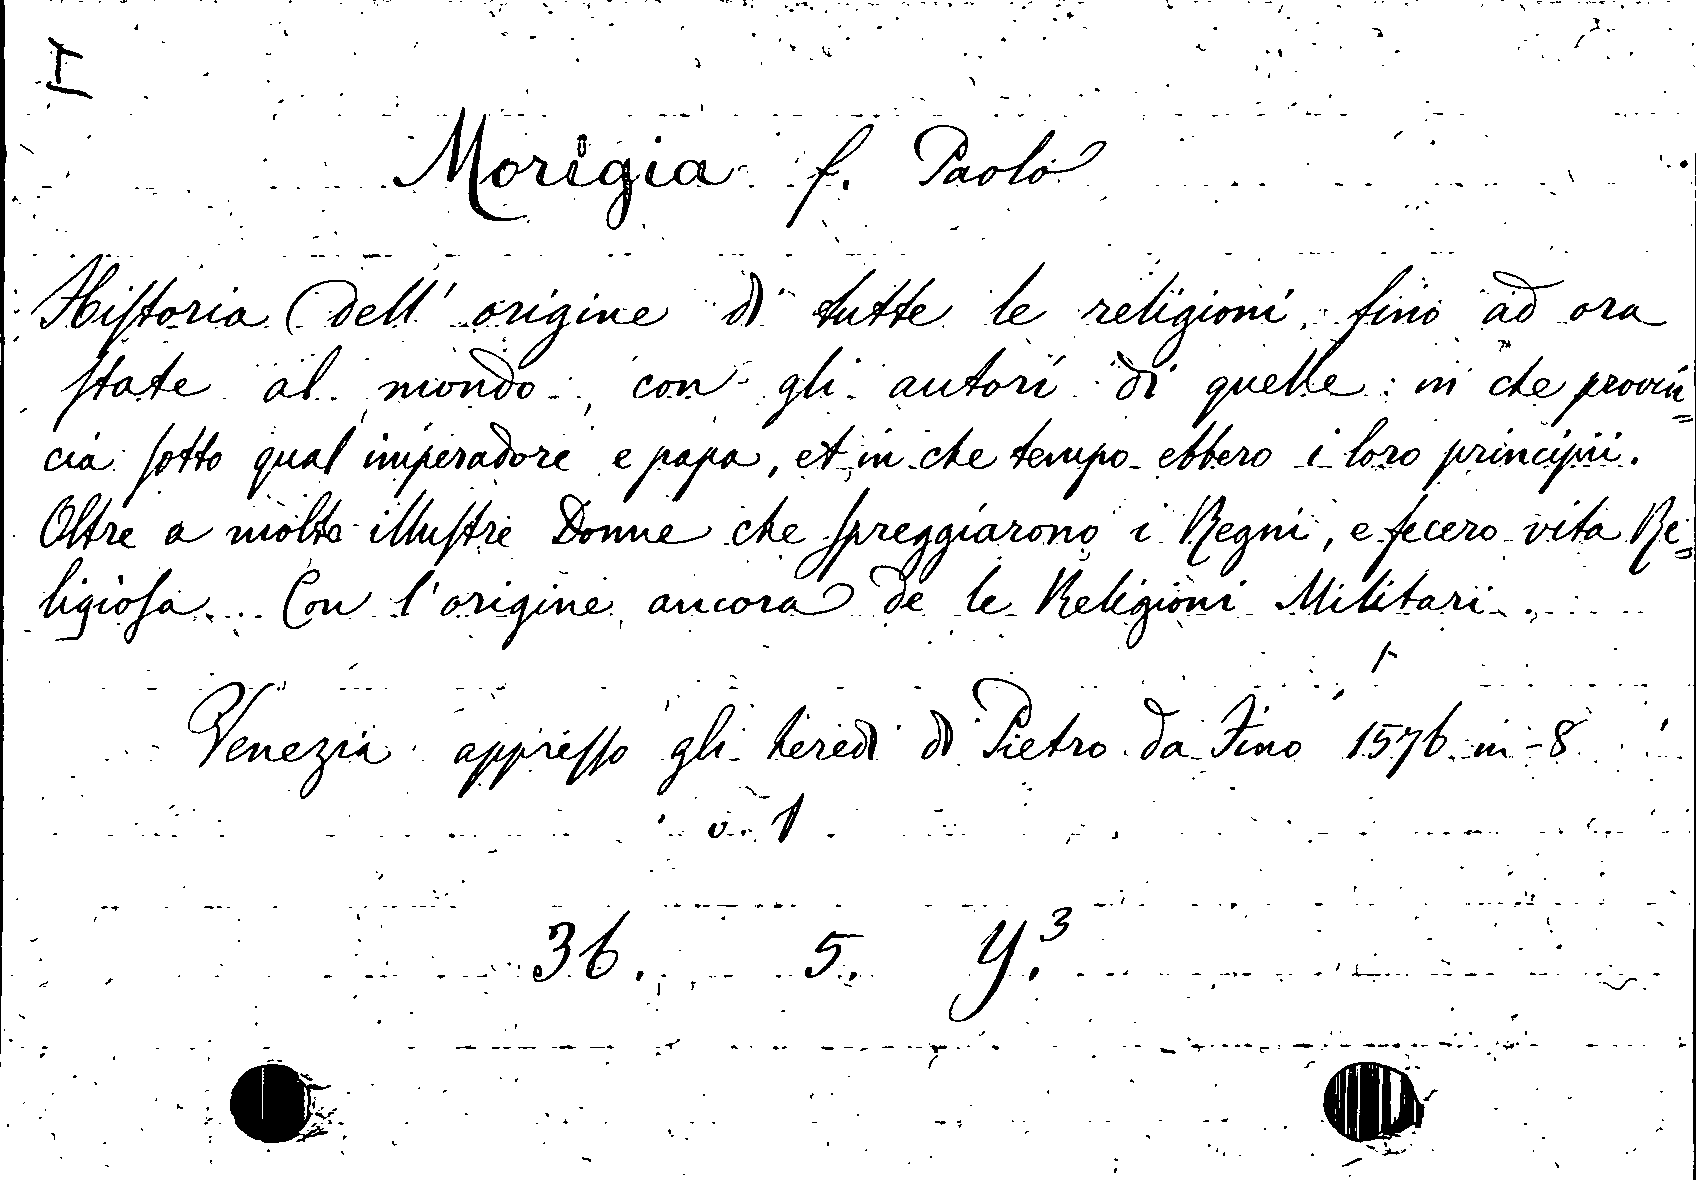 I
Morigia f. Paolo
Historia dell' origine di tutte le religioni, fino ad ora
state al mondo, con gli autori di quelle: in che provin=
cia sotto qual imperadore e papa, et in che tempo ebbero i loro principii.
Oltre a molte illustre Donne che spreggiarono i Regni, e fecero vita Re=
ligiosa. Con l'origine ancora de le Religioni Militari.
Venezia appresso gli heredi di Pietro da Fino 1576 in-8
v. 1
36. 5. Y.³